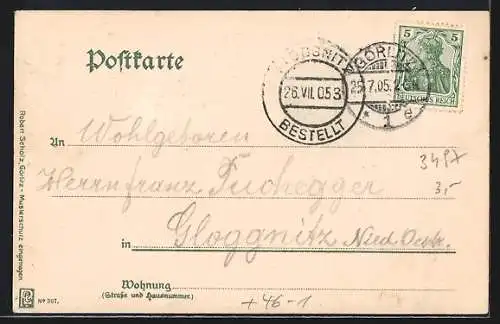 Postkarte
5 5
DEUTSCHES REICH
GÖRLITZ
25.7.05.2-
* 1 e
26.VII.05 3
BESTELLT
An Wohlgeboren
Herrn Franz
3497
3,-
in Gloggnitz Nied. Oestr.
Wohnung
(Straße und Hausnummer)
+46-1
Robert Scholz, Görlitz - Musterschutz eingetragen
No 307.